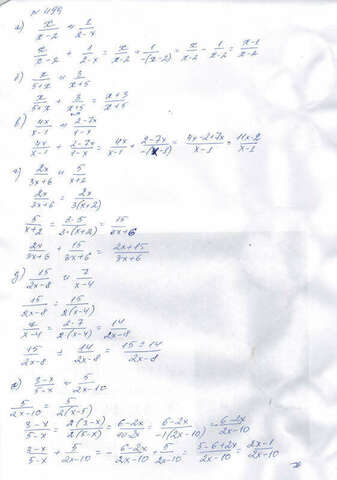 а) x/(x-2) и 1/(2-x)
x/(x-2) + 1/(2-x) = x/(x-2) + 1/(-(x-2)) = x/(x-2) - 1/(x-2) = (x-1)/(x-2)
б) x/(5+x) и 3/(x+5)
x/(5+x) + 3/(x+5) = (x+3)/(x+5)
в) 4x/(x-1) и (2-7x)/(1-x)
4x/(x-1) + (2-7x)/(1-x) = 4x/(x-1) + (2-7x)/(-(x-1)) = (4x-2+7x)/(x-1) = (11x-2)/(x-1)
г) 2x/(3x+6) и 5/(x+2)
2x/(3x+6) = 2x/(3(x+2))
= 15/(3x+6)
2x/(3x+6) + 15/(3x+6) = (2x+15)/(3x+6)
д) 15/(2x-8) и 7/(x-4)
15/(2x-8) = 15/(2(x-4))
7/(x-4) = (2·7)/(2(x-4)) = 14/(2x-8)
15/(2x-8) ± 14/(2x-8) = (15±14)/(2x-8)
(3-x)/(5-x) и 5/(2x-10)
5/(2x-10) = 5/(2(x-5))
(3-x)/(5-x) = (2(3-x))/(2(5-x)) = (6-2x)/(10-2x) = (6-2x)/(-1(2x-10)) = -(6-2x)/(2x-10)
(3-x)/(5-x) + 5/(2x-10) = -(6-2x)/(2x-10) + 5/(2x-10) = (5-6+2x)/(2x-10) = (2x-1)/(2x-10)